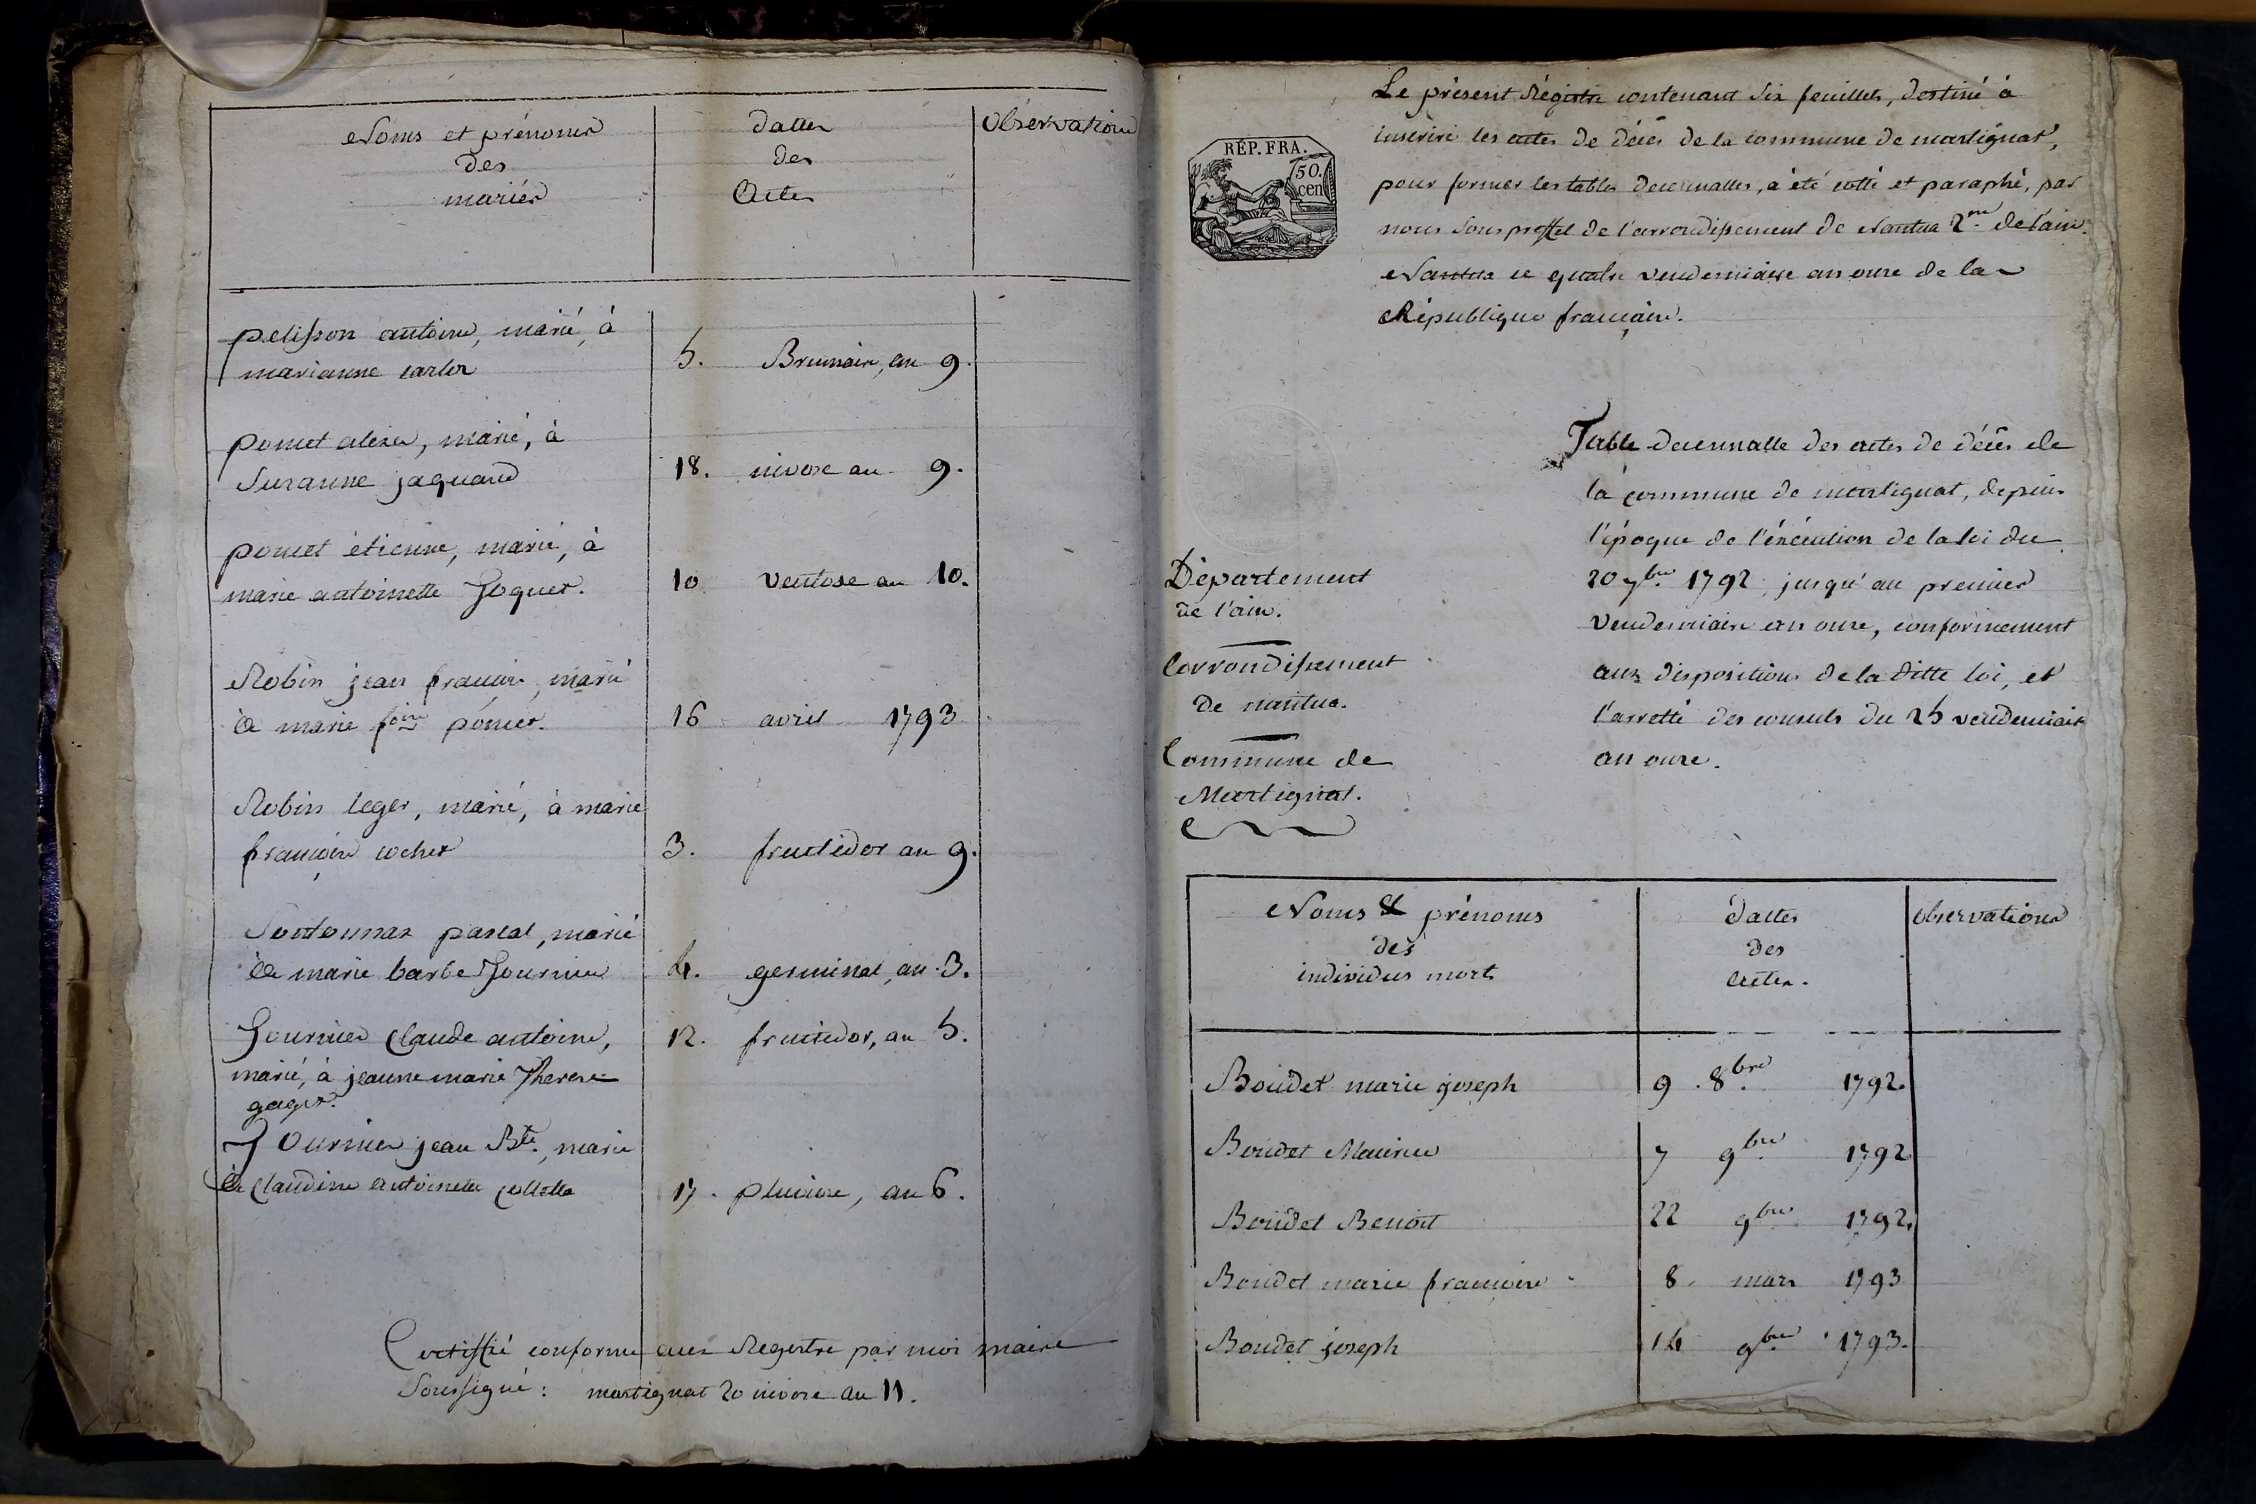 Noms et prénoms
des
mariés
dattes
des
Actes
Observations
pelisson antoine, marié, à
marianne carler
5. Brumaire, an 9.
pomet alexis, marié, à
Suzanne jaquand
18. nivose an 9.
pomet étienne, marié, à
marie antoinette Joquet.
10 ventose an 10.
Robin jean francois, marié
à marie f.oise pomet.
16 avril 1793
Robin leger, marié, à marie
francoise cochet
3. fructidor an 9.
Sontonnax pascal, marié
à marie barbe Tournier
4. germinal, an 3.
Tournier Claude antoine,
marié, à jeanne marie Therese
gager.
12. fructidor, an 5.
Tournier jean Bte., marié
à Claudine antoinette collette
17. pluviose, an 6.
Certiffié conforme aux Registre par moi maire
Soussigné : martignat 20 nivose an 11.
Le présent Régistre contenant Six feuillets, destiné à
inscrire les actes de décès de la commune de martignat,
pour former les tables decennalles, a été cotté et paraphé, par
nous Souspréfet de l'arrondissement de Nantua 2.me de l'ain.
Nantua ce quatre vendemiaire an onze de la
République française.
RÉP. FRA.
50.
cen
Table decennalle des actes de décès de
la commune de martignat, depuis
l'époque de l'éxécution de la loi du
20 7bre. 1792 jusqu'au premier
Vendemiaire an onze, conformement
aux dispositions de la ditte loi, et
l'arretté des consuls du 25 vendemiaire
an onze.
Département
de l'ain.
arrondissement
de nantua.
Commune de
Martignat.
Noms & prénoms
des
individus morts
dattes
des
actes.
observations
Boudet marie joseph 9. 8bre. 1792.
Boudet Maurice 7 9bre. 1792
Boudet Benoit 22 9bre. 1792.
Boudet marie francoise 8. mars 1793
Boudet joseph 14 9bre. 1793.